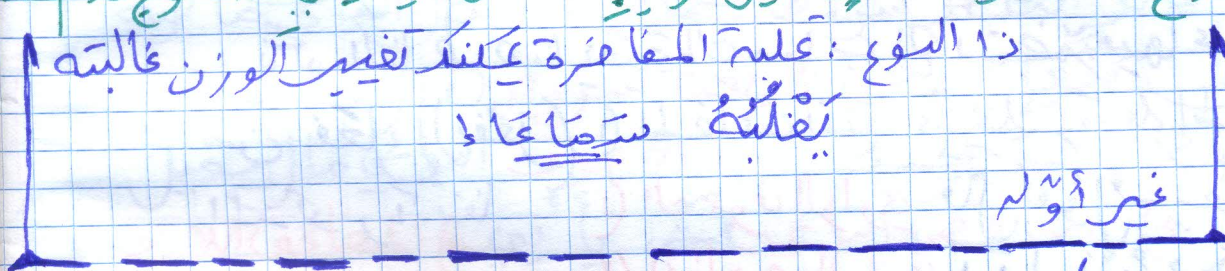 ذا النوع : غلبة المفاخرة يمكنك تغيير الوزن غالبته
يَغْلُبُهُ سَمَاعًا
غير أوّله